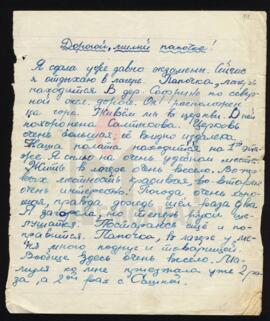 Дорогой, милый папочка!
Я сдала уже давно экзамены. Сейчас
я отдыхаю в лагере. Папочка, лагерь
находится в дер. Софрино по север-
ной ж. дороге. Он расположен
на горе. Живём мы в церкви. В ней
похоронена Салтычиха. Церковь
очень большая, и видно издалека.
Наша палата находится на 1ом эта-
же. Я сплю на очень удобном месте.
Жить в лагере очень весело. Во-пер-
вых местность красивая, во-вторых
очень интересно. Погода очень хоро-
шая, правда дождь шёл раза два.
Я загорела, но теперь руки ше-
лушатся. Постараюсь ещё и по-
правится. Папочка, в лагере у ме-
ня много подруг и товарищей.
Вообще здесь очень весело.
ко мне приезжала уже 2 ра-
за, а 2ой раз с Сашкой.